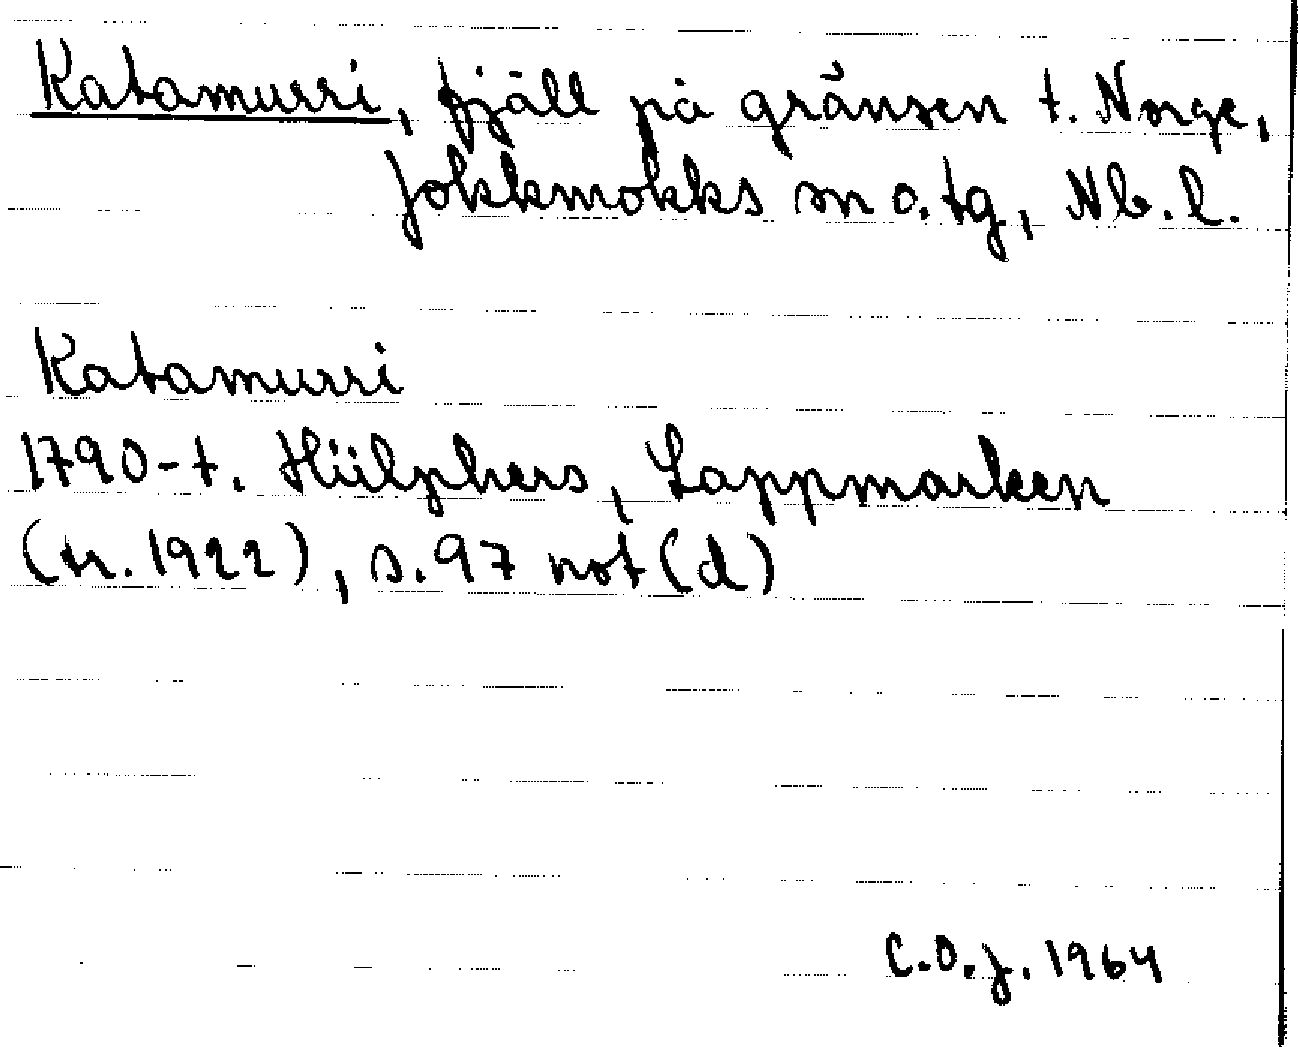 Katamurri, fjäll på gränsen t. Norge,
Jokkmokks sn o. tg, Nb. l.
Katamurri
1790-t. Hülphers, Lappmarken
(tr. 1922), s. 97 not (d)
C.O.J. 1964